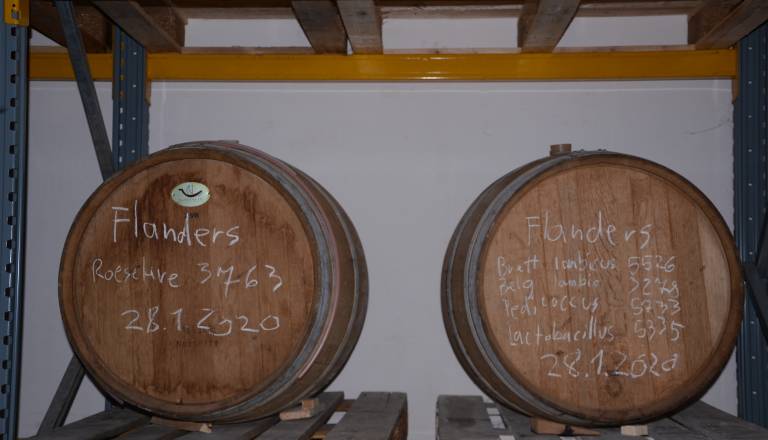 Flanders
Roeselare 3763
28.1.2020
Flanders
Brett lambicus 5526
Belg lambic 3278
Pediococcus 5733
Lactobacillus 5335
28.1.2020